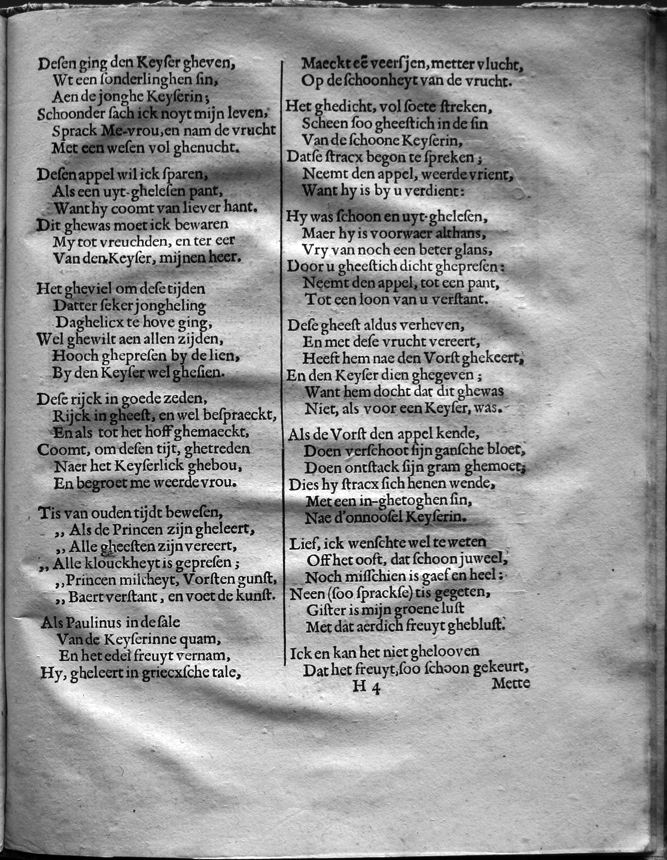 Desen ging den Keyser gheven,
Wt een sonderlinghen sin,
Aen de jonghe Keyserin;
Schoonder sach ick noyt mijn leven,
Sprack Me-vrou, en nam de vrucht
Met een wesen vol ghenucht.
Desen appel wil ick sparen,
Als een uyt-ghelesen pant,
Want hy coomt van liever hant.
Dit ghewas moet ick bewaren
My tot vreuchden, en ter eer
Van den Keyser, mijnen heer.
Het gheviel om dese tijden
Datter seker jongheling
Daghelicx te hove ging,
Wel ghewilt aen allen zijden,
Hooch ghepresen by de lien,
By den Keyser wel ghesien.
Dese rijck in goede zeden,
Rijck in gheest, en wel bespraeckt,
En als tot het hoff ghemaeckt,
Coomt, om desen tijt, ghetreden
Naer het Keyserlick ghebou,
En begroet me weerde vrou.
Tis van ouden tijdt bewesen,
,, Als de Princen zijn gheleert,
,, Alle gheesten zijn vereert,
,, Alle klouckheyt is gepresen;
,, Princen milcheyt, Vorsten gunst,
,, Baert verstant, en voet de kunst.
Als Paulinus in de sale
Van de Keyserinne quam,
En het edel freuyt vernam,
Hy, gheleert in griecxsche tale,
Maeckt eẽ veersjen, metter vlucht,
Op de schoonheyt van de vrucht.
Het ghedicht, vol soete streken,
Scheen soo gheestich in de sin
Van de schoone Keyserin,
Datse stracx begon te spreken;
Neemt den appel, weerde vrient,
Want hy is by u verdient:
Hy was schoon en uyt-ghelesen,
Maer hy is voorwaer althans,
Vry van noch een beter glans,
Door u gheestich dicht ghepresen:
Neemt den appel, tot een pant,
Tot een loon van u verstant.
Dese gheest aldus verheven,
En met dese vrucht vereert,
Heeft hem nae den Vorst ghekeert,
En den Keyser dien ghegeven;
Want hem docht dat dit ghewas
Niet, als voor een Keyser, was.
Als de Vorst den appel kende,
Doen verschoot sijn gansche bloet,
Doen ontstack sijn gram ghemoet;
Dies hy stracx sich henen wende,
Met een in-ghetoghen sin,
Nae d'onnoosel Keyserin.
Lief, ick wenschte wel te weten
Off het ooft, dat schoon juweel,
Noch misschien is gaef en heel:
Neen (soo sprackse) tis gegeten,
Gister is mijn groene lust
Met dat aerdich freuyt gheblust.
Ick en kan het niet ghelooven
Dat het freuyt, soo schoon gekeurt,
H 4 Mette